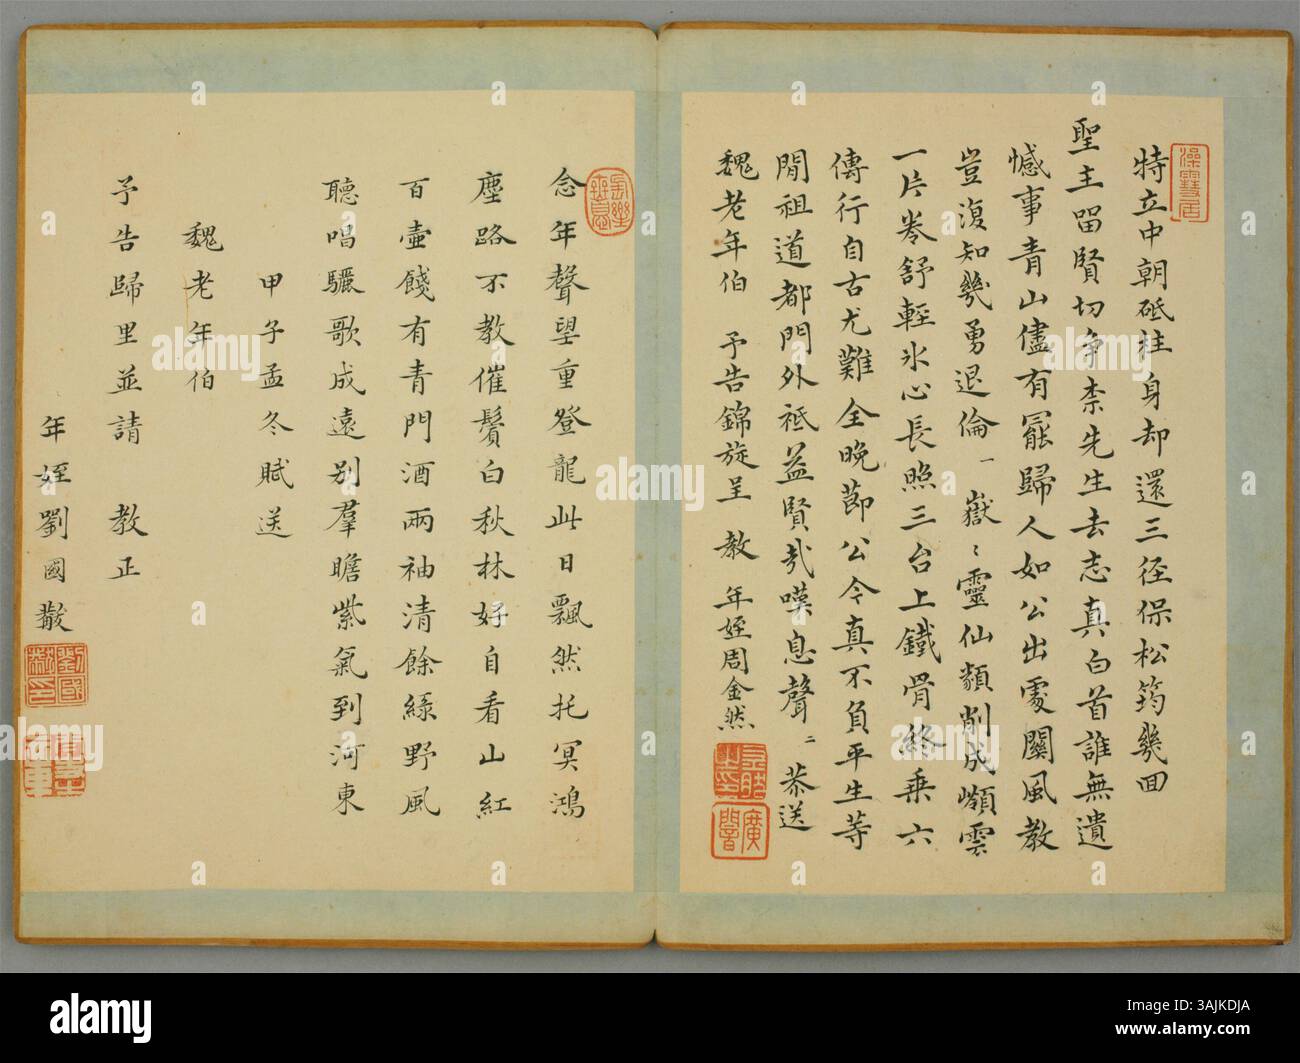 特立中朝砥柱身却還三徑保松筠幾回
聖主留賢切爭柰先生去志真白首誰無遺
憾事青山儘有罷歸人如公出處關風教
豈復知幾勇退倫 一 嶽〻靈仙類削成嶺雲
一片卷舒輕氷心長照三台上鐵骨終乗六
傳行自古尤難全晚節公今真不負平生等
閒祖道都門外祗益賢哉嘆息聲 二 恭送
魏老年伯 予告錦旋呈 教 年姪周金然
念年聲望重登龍此日飄然托冥鴻
塵路不教催鬢白秋林好自看山紅
百壺餞有青門酒兩袖清餘綠野風
聽唱驪歌成遠别羣瞻紫氣到河東
甲子孟冬賦送
魏老年伯
予告歸里並請 教正
年姪劉國黻
劉國黻印
alamy
Image ID: 3AJKDJA
www.alamy.com